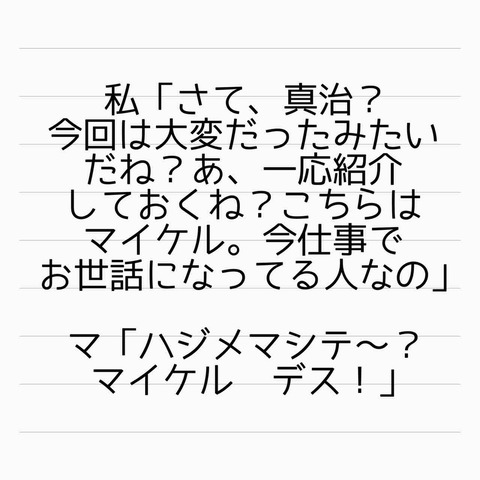 私「さて、真治？
今回は大変だったみたい
だね？あ、一応紹介
しておくね？こちらは
マイケル。今仕事で
お世話になってる人なの」
マ「ハジメマシテ〜？
マイケル　デス！」